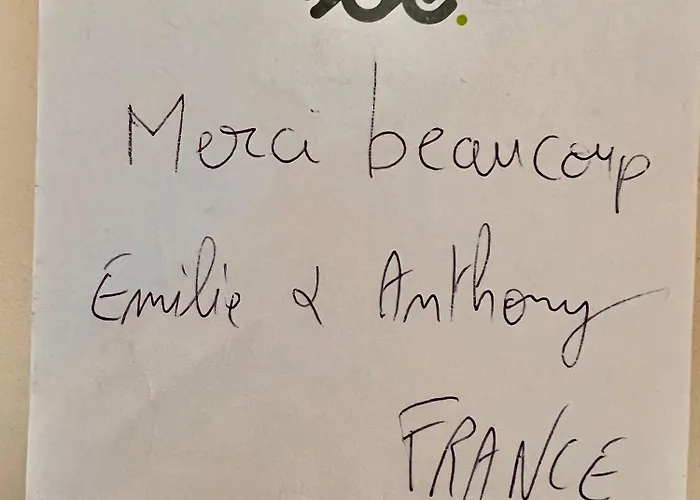 Merci beaucoup
Emilie & Anthony
FRANCE